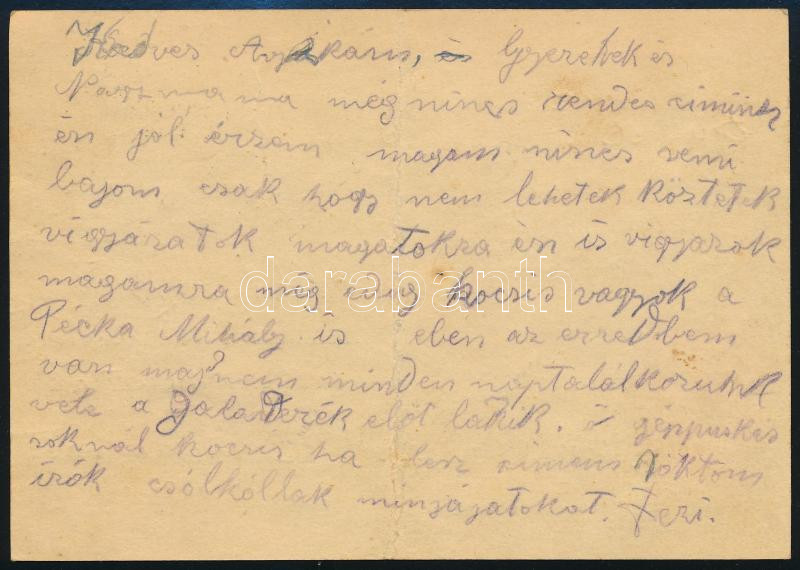 Kedves Anyikám, és Gyerekek és
Naszmama még nincs rendes cimünk
én jól érzem magam nincs semi
bajom csak hogy nem lehetek köztetek
vigyázatok magatokra én is vigyazok
magamra még edig kocsis vagyok a
Pécka Mihály is eben az erredben
van majnem minden nap találkozunk
vele a Galaderék előt lakik. ő géppuskás
soknál kocsis ha lesz cimem röktöm
írók csólkóllak minjájatokat. Feri.
darabanth